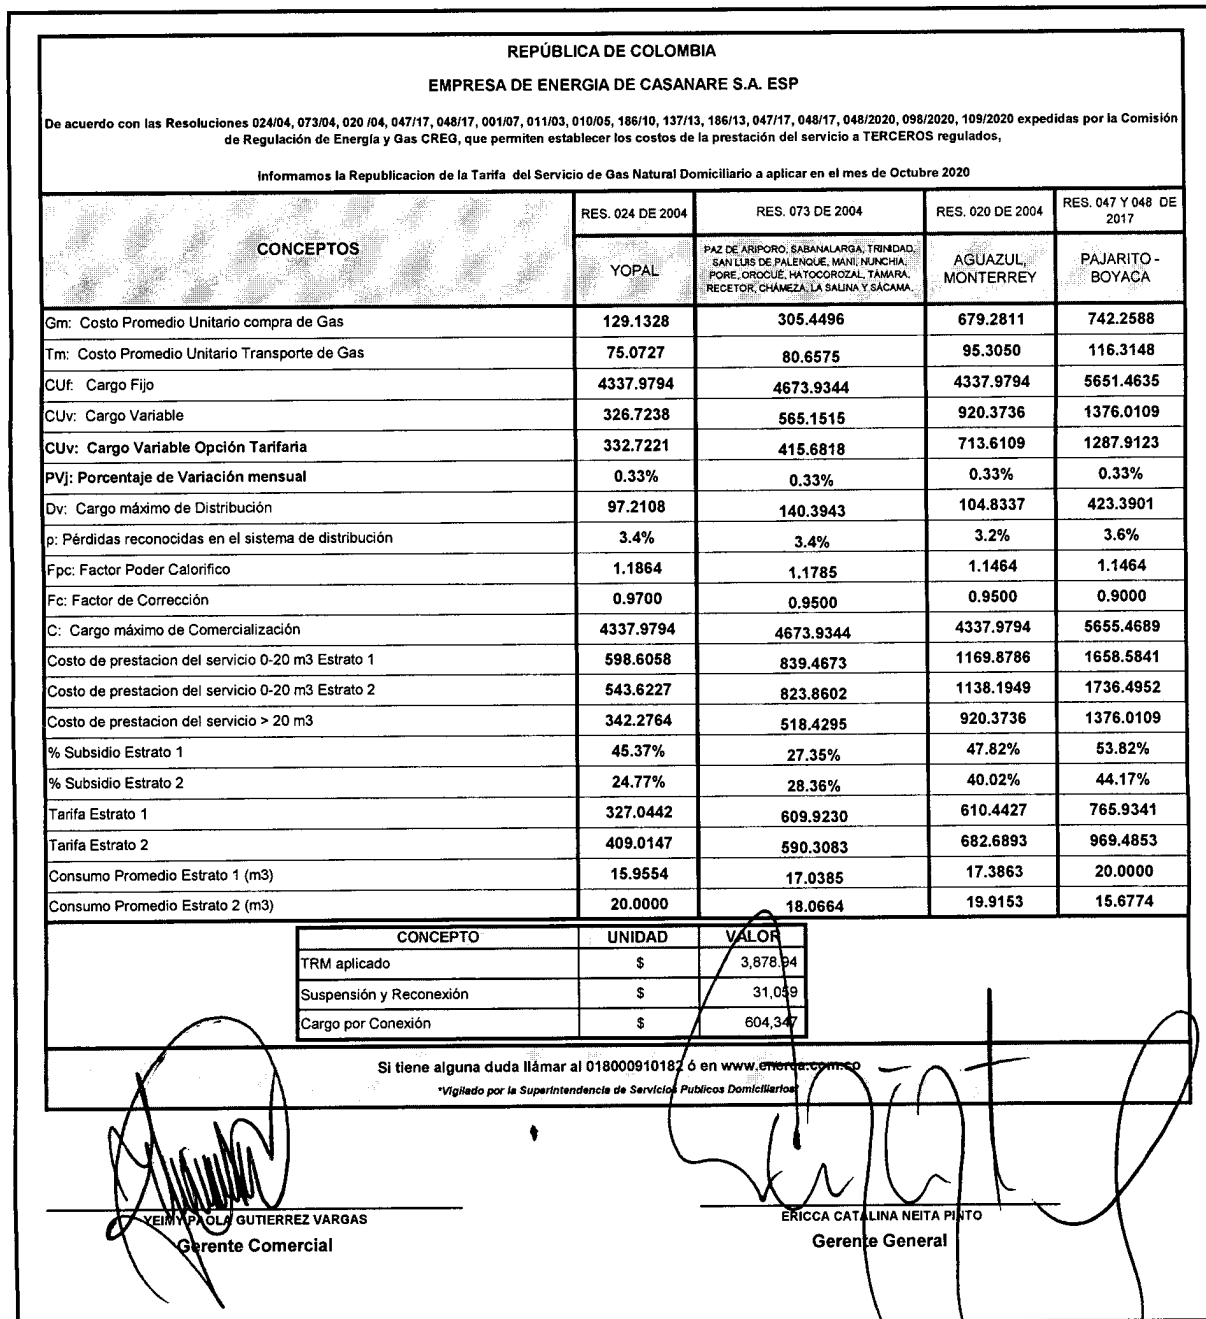 REPÚBLICA DE COLOMBIA
EMPRESA DE ENERGIA DE CASANARE S.A. ESP
De acuerdo con las Resoluciones 024/04, 073/04, 020 /04, 047/17, 048/17, 001/07, 011/03, 010/05, 186/10, 137/13, 186/13, 047/17, 048/17, 048/2020, 098/2020, 109/2020 expedidas por la Comisión
de Regulación de Energía y Gas CREG, que permiten establecer los costos de la prestación del servicio a TERCEROS regulados,
Informamos la Republicacion de la Tarifa del Servicio de Gas Natural Domiciliario a aplicar en el mes de Octubre 2020
CONCEPTOS
RES. 024 DE 2004 RES. 073 DE 2004 RES. 020 DE 2004 RES. 047 Y 048 DE
2017
YOPAL
PAZ DE ARIPORO, SABANALARGA, TRINIDAD,
SAN LUIS DE PALENQUE, MANI, NUNCHIA,
PORE, OROCUÉ, HATOCOROZAL, TÁMARA,
RECETOR, CHÁMEZA, LA SALINA Y SÁCAMA.
AGUAZUL,
MONTERREY
PAJARITO -
BOYACA
Gm: Costo Promedio Unitario compra de Gas 129.1328 305.4496 679.2811 742.2588
Tm: Costo Promedio Unitario Transporte de Gas 75.0727 80.6575 95.3050 116.3148
CUf: Cargo Fijo 4337.9794 4673.9344 4337.9794 5651.4635
CUv: Cargo Variable 326.7238 565.1515 920.3736 1376.0109
CUv: Cargo Variable Opción Tarifaria 332.7221 415.6818 713.6109 1287.9123
PVj: Porcentaje de Variación mensual 0.33% 0.33% 0.33% 0.33%
Dv: Cargo máximo de Distribución 97.2108 140.3943 104.8337 423.3901
p: Pérdidas reconocidas en el sistema de distribución 3.4% 3.4% 3.2% 3.6%
Fpc: Factor Poder Calorifico 1.1864 1.1785 1.1464 1.1464
Fc: Factor de Corrección 0.9700 0.9500 0.9500 0.9000
C: Cargo máximo de Comercialización 4337.9794 4673.9344 4337.9794 5655.4689
Costo de prestacion del servicio 0-20 m3 Estrato 1 598.6058 839.4673 1169.8786 1658.5841
Costo de prestacion del servicio 0-20 m3 Estrato 2 543.6227 823.8602 1138.1949 1736.4952
Costo de prestacion del servicio > 20 m3 342.2764 518.4295 920.3736 1376.0109
% Subsidio Estrato 1 45.37% 27.35% 47.82% 53.82%
% Subsidio Estrato 2 24.77% 28.36% 40.02% 44.17%
Tarifa Estrato 1 327.0442 609.9230 610.4427 765.9341
Tarifa Estrato 2 409.0147 590.3083 682.6893 969.4853
Consumo Promedio Estrato 1 (m3) 15.9554 17.0385 17.3863 20.0000
Consumo Promedio Estrato 2 (m3) 20.0000 18.0664 19.9153 15.6774
CONCEPTO UNIDAD VALOR
TRM aplicado $ 3,878.94
Suspensión y Reconexión $ 31,059
Cargo por Conexión $ 604,347
Si tiene alguna duda llámar al 018000910182 ó en www.enerca.com.co
*Vigilado por la Superintendencia de Servicios Publicos Domiciliarios*
YEIMY PAOLA GUTIERREZ VARGAS
Gerente Comercial
ERICCA CATALINA NEITA PINTO
Gerente General